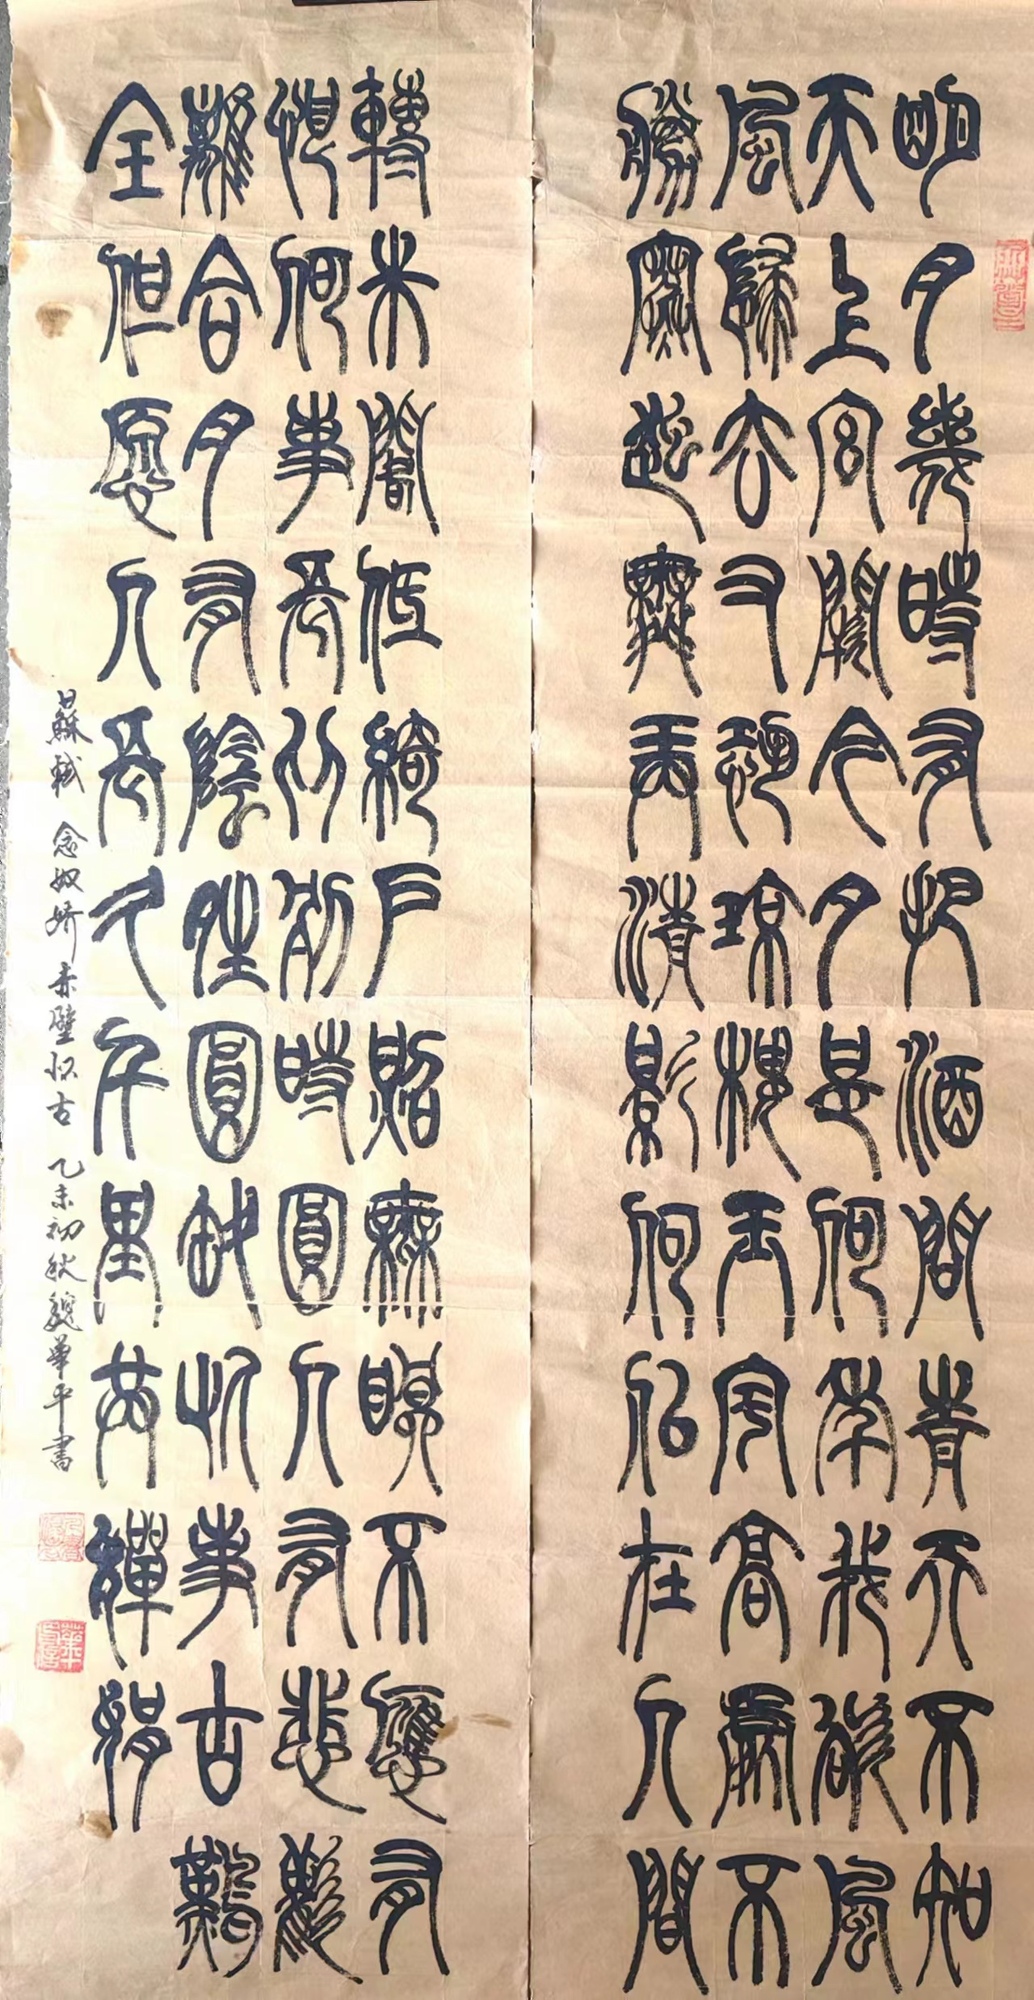 明月幾時有把酒問青天不知
天上宮闕今夕是何年我欲風
風歸去又恐瓊樓玉宇高處不
勝寒起舞弄清影何似在人間
轉朱閣低綺戶照無眠不應有
恨何事長向別時圓人有悲歡
離合月有陰晴圓缺此事古難
全但願人長久千里共嬋娟
蘇軾 念奴嬌赤壁怀古 乙未初秋魏華平書